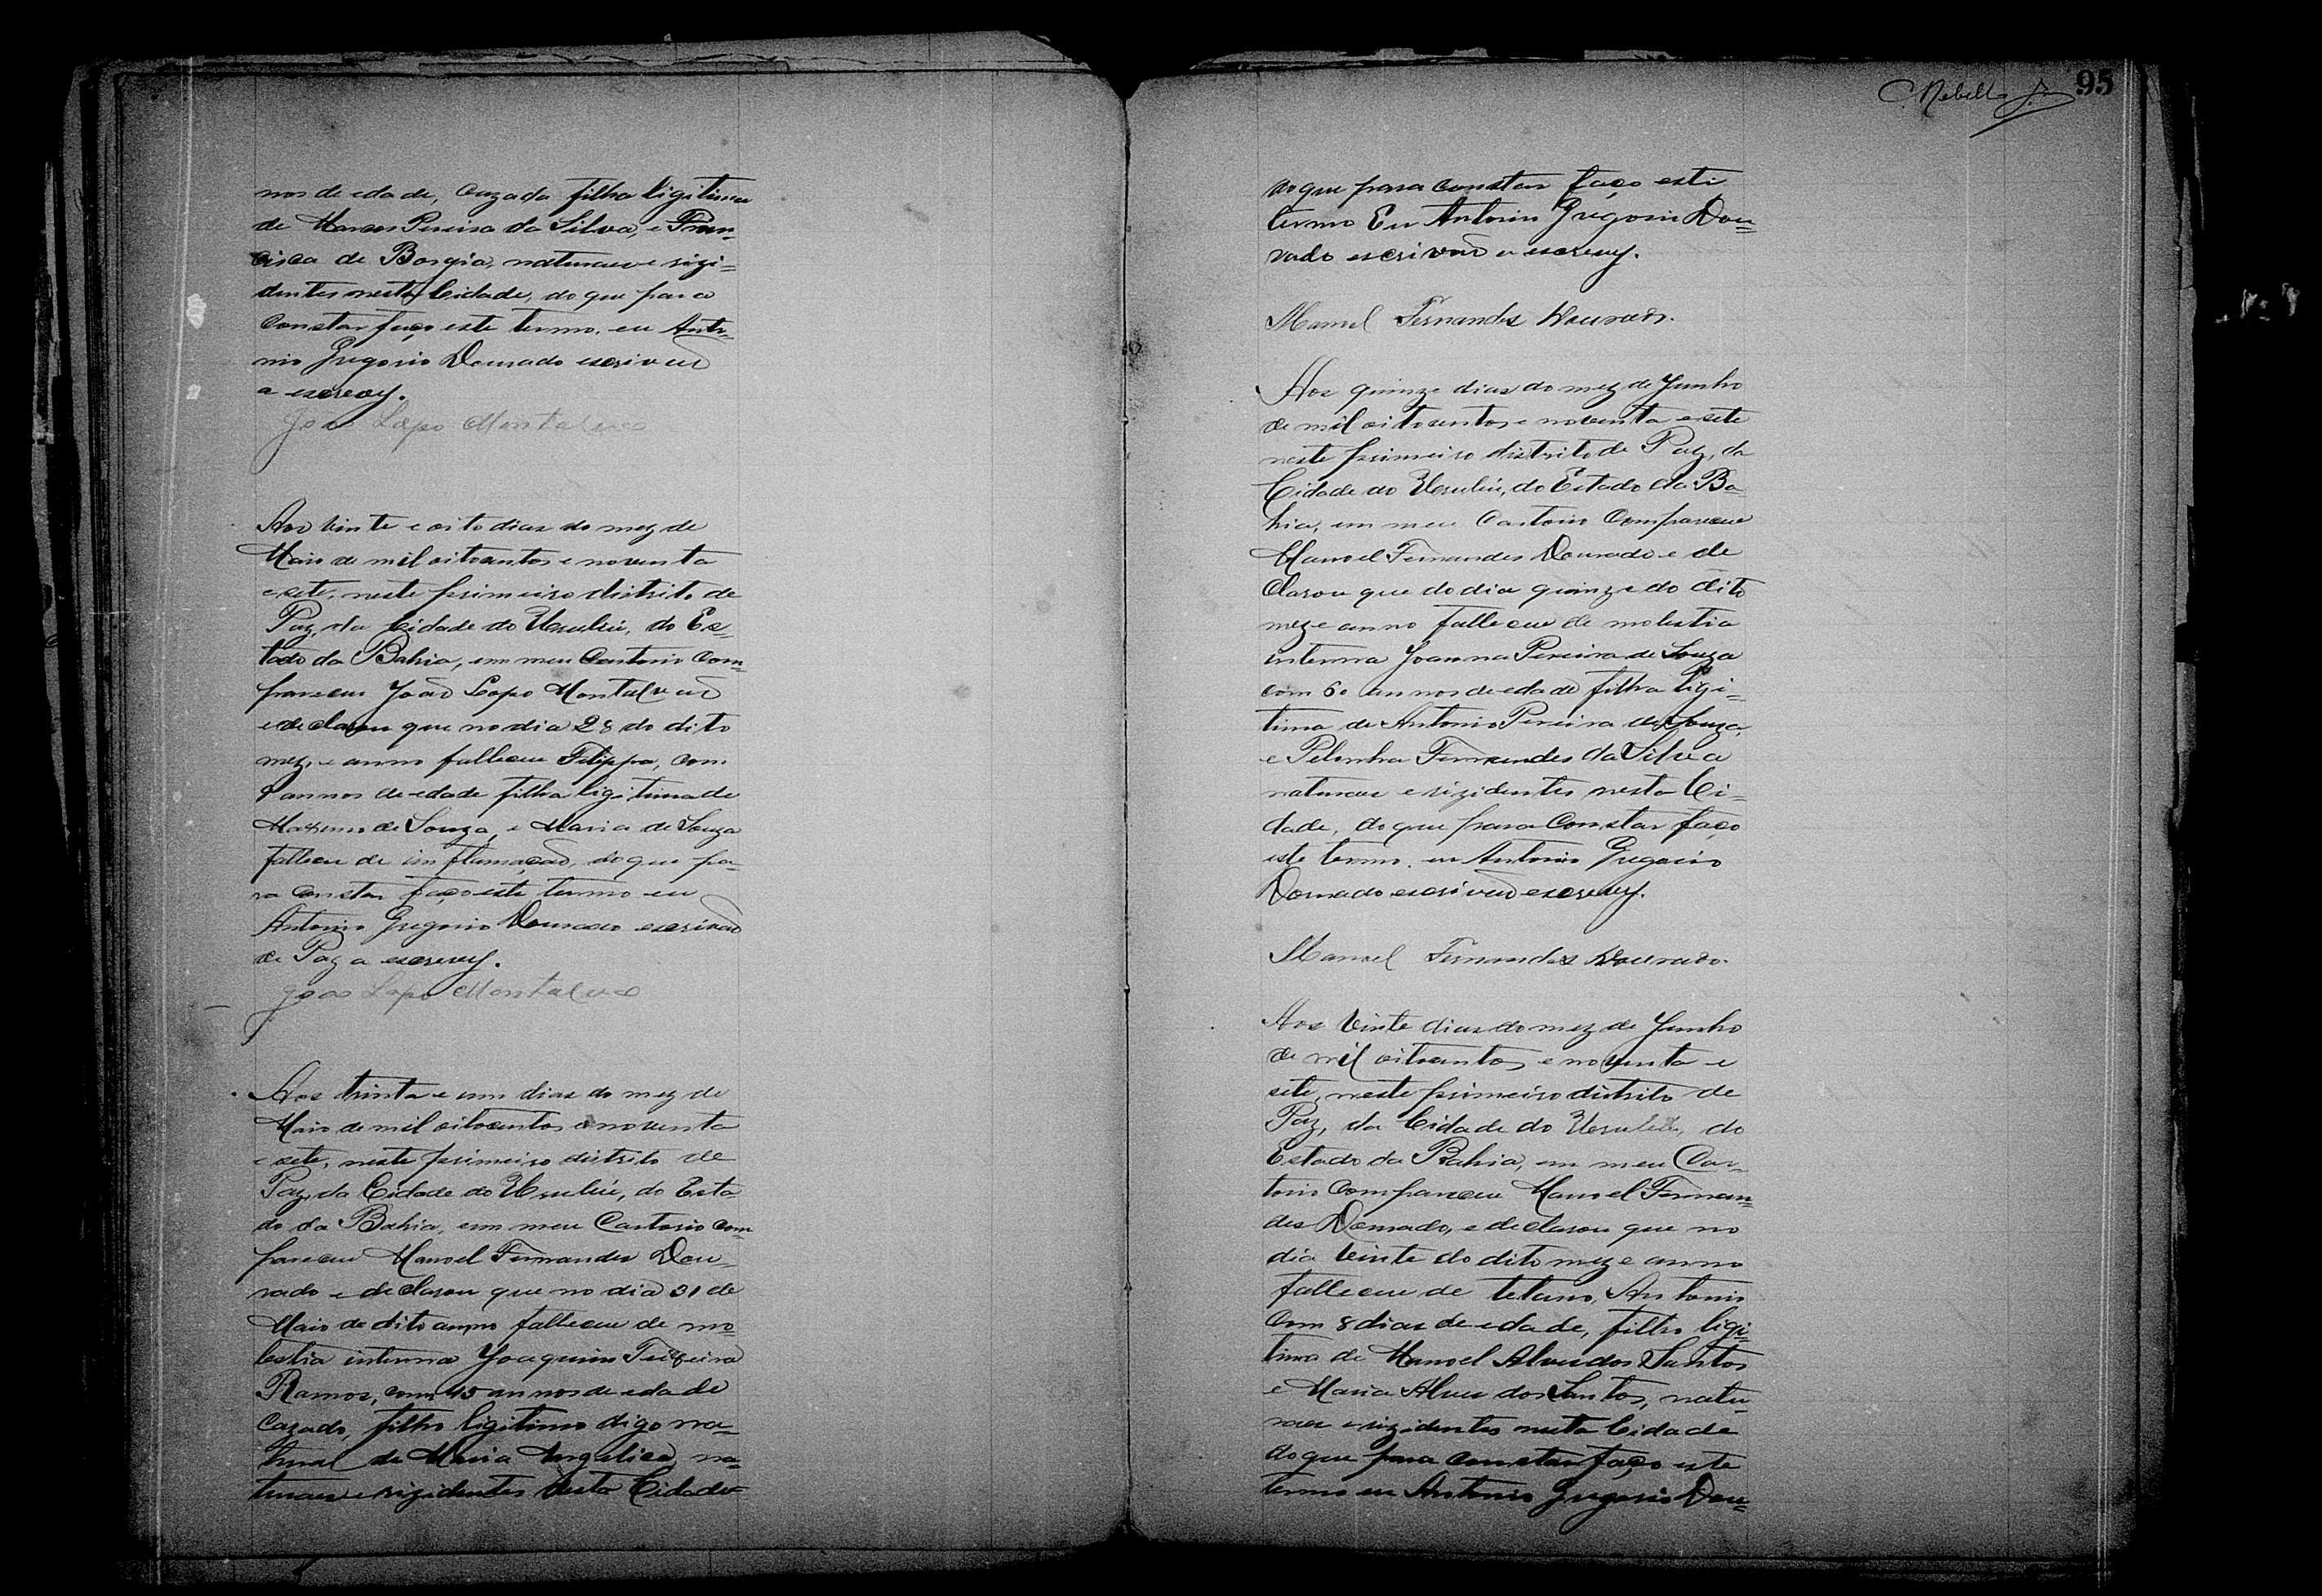 nos de edade, cazada filha ligitima
de Marcos Pereira da Silva, e Fran-
cisca de Borgia, naturaes e rizi=
dentes nesta Cidade, do que para
constar faço este termo. eu Anto-
nio Gregorio Dourado escrivaõ
a escrevy.
João Lapo Montalvão
Aos vinte e oito dias do mez de
Maio de mil oitocentos e noventa
e sete, neste primeiro distrito de
Paz, da Cidade do Urubú, do Es-
tado da Bahia, em meu Cartorio com-
pareceu João Lapo Montalvaõ
e declarou que no dia 28 do dito
mez, e anno falleceu Filippa, com
annos de edade filha ligitima de
de Souza, e Maria de Souza
falleceu de inflamaçaõ, do que pa-
ra constar faço este termo eu
Antonio Gregorio Dourado escrivaõ
de Paz a escrevy.
João Lapo Montalvão
Aos trinta e um dias do mez de
Maio de mil oitocentos e noventa
e sete, neste primeiro distrito de
Paz, da Cidade do Urubú, do Esta
do da Bahia, em meu Cartorio com-
pareceu Manoel Fernandes Dou-
rado e declarou que no dia 31 de
Maio do dito anno falleceu de mo-
lestia interna Joaquim Teixeira
Ramos, com 45 annos de edade
cazado, filho ligitimo digo na-
tural de Maria Angelica, na-
turaes e rizidentes nesta Cidade
95
Rebello Jr
do que para constar faço este
termo Eu Antonio Gregorio Dou=
rado escrivaõ a escrevy.
Manoel Fernandes Dourado.
Aos quinze dias do mez de Junho
de mil oitocentos e noventa e sete
neste primeiro distrito de Paz, da
Cidade do Urubú, do Estado da Ba-
hia, em meu Cartorio Compareceu
Manoel Fernandes Dourado e de
clarou que do dia quinze do dito
mez e anno falleceu de molestia
interna Joanna Pereira de Souza
com 60 annos de edade filha ligi-
tima de Antonio Pereira de Souza,
e Fernandes da Silva
naturaes e rizidentes nesta Ci-
dade, do que para Constar faço
este termo. eu Antonio Gregorio
Dourado escrivaõ escrevy.
Manoel Fernandes Dourado.
Aos vinte dias do mez de Junho
de mil oitocentos e noventa e
sete, neste primeiro distrito de
Paz, da Cidade do Urubú, do
Estado da Bahia, em meu Car-
torio compareceu Manoel Fernan-
des Dourado, e declarou que no
dia vinte do dito mez e anno
falleceu de tetano, Antonio
Com 8 dias de edade, filho ligi-
timo de Manoel Alves dos Santos
e Maria Alves dos Santos, natu-
raes e rizidentes nesta Cidade
do que para constar faço este
termo eu Antonio Gregorio Dou=